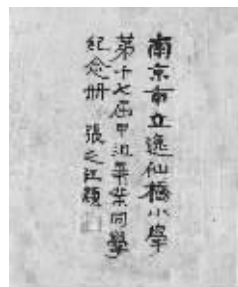 南京市立逸仙橋小學
第十七屆甲班畢業同學
紀念册 張之江題